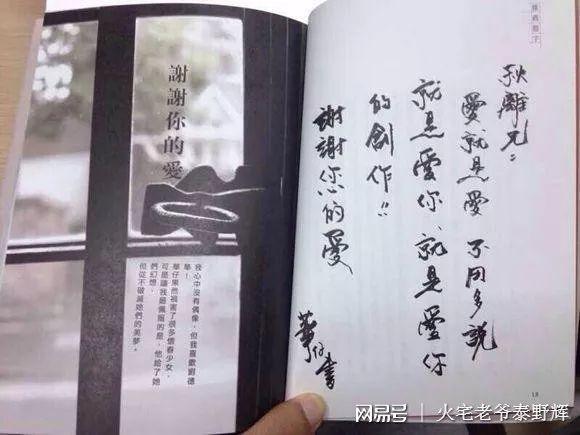 謝謝你的愛
我心中沒有偶像，但我喜歡劉德
華！
華仔果然禍害了很多懷春少女，
可是讓我最佩服的是，他給了她
們幻想，
但從不破滅她們的美夢。
推薦題字
秋離兄：
愛就是愛 不用多說
就是愛你 就是愛你
的創作!!
謝謝您的愛
華仔書
13
网易号 火宅老爷泰野辉